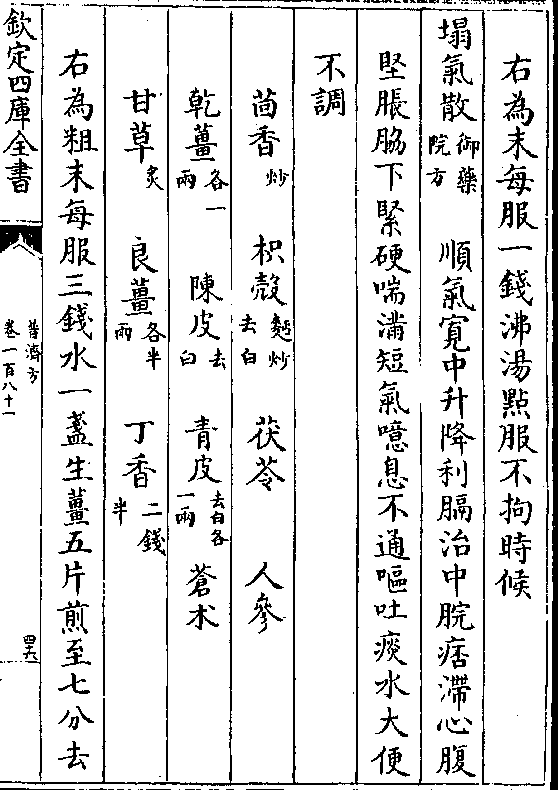 右為末每服一錢沸湯點服不拘時候
塌氣散御藥院方　順氣寛中升降利膈治中脘痞滯心腹
堅脹脇下緊硬喘滿短氣噫息不通嘔吐痰水大便
不調
茴香炒　枳殼麩炒去白　茯苓　人參
乾薑各一兩　陳皮去白　青皮去白各一兩　蒼术
甘草炙　良薑各半兩　丁香二錢半
右為粗末每服三錢水一盞生薑五片煎至七分去
欽定四庫全書
普濟方
卷一百八十一